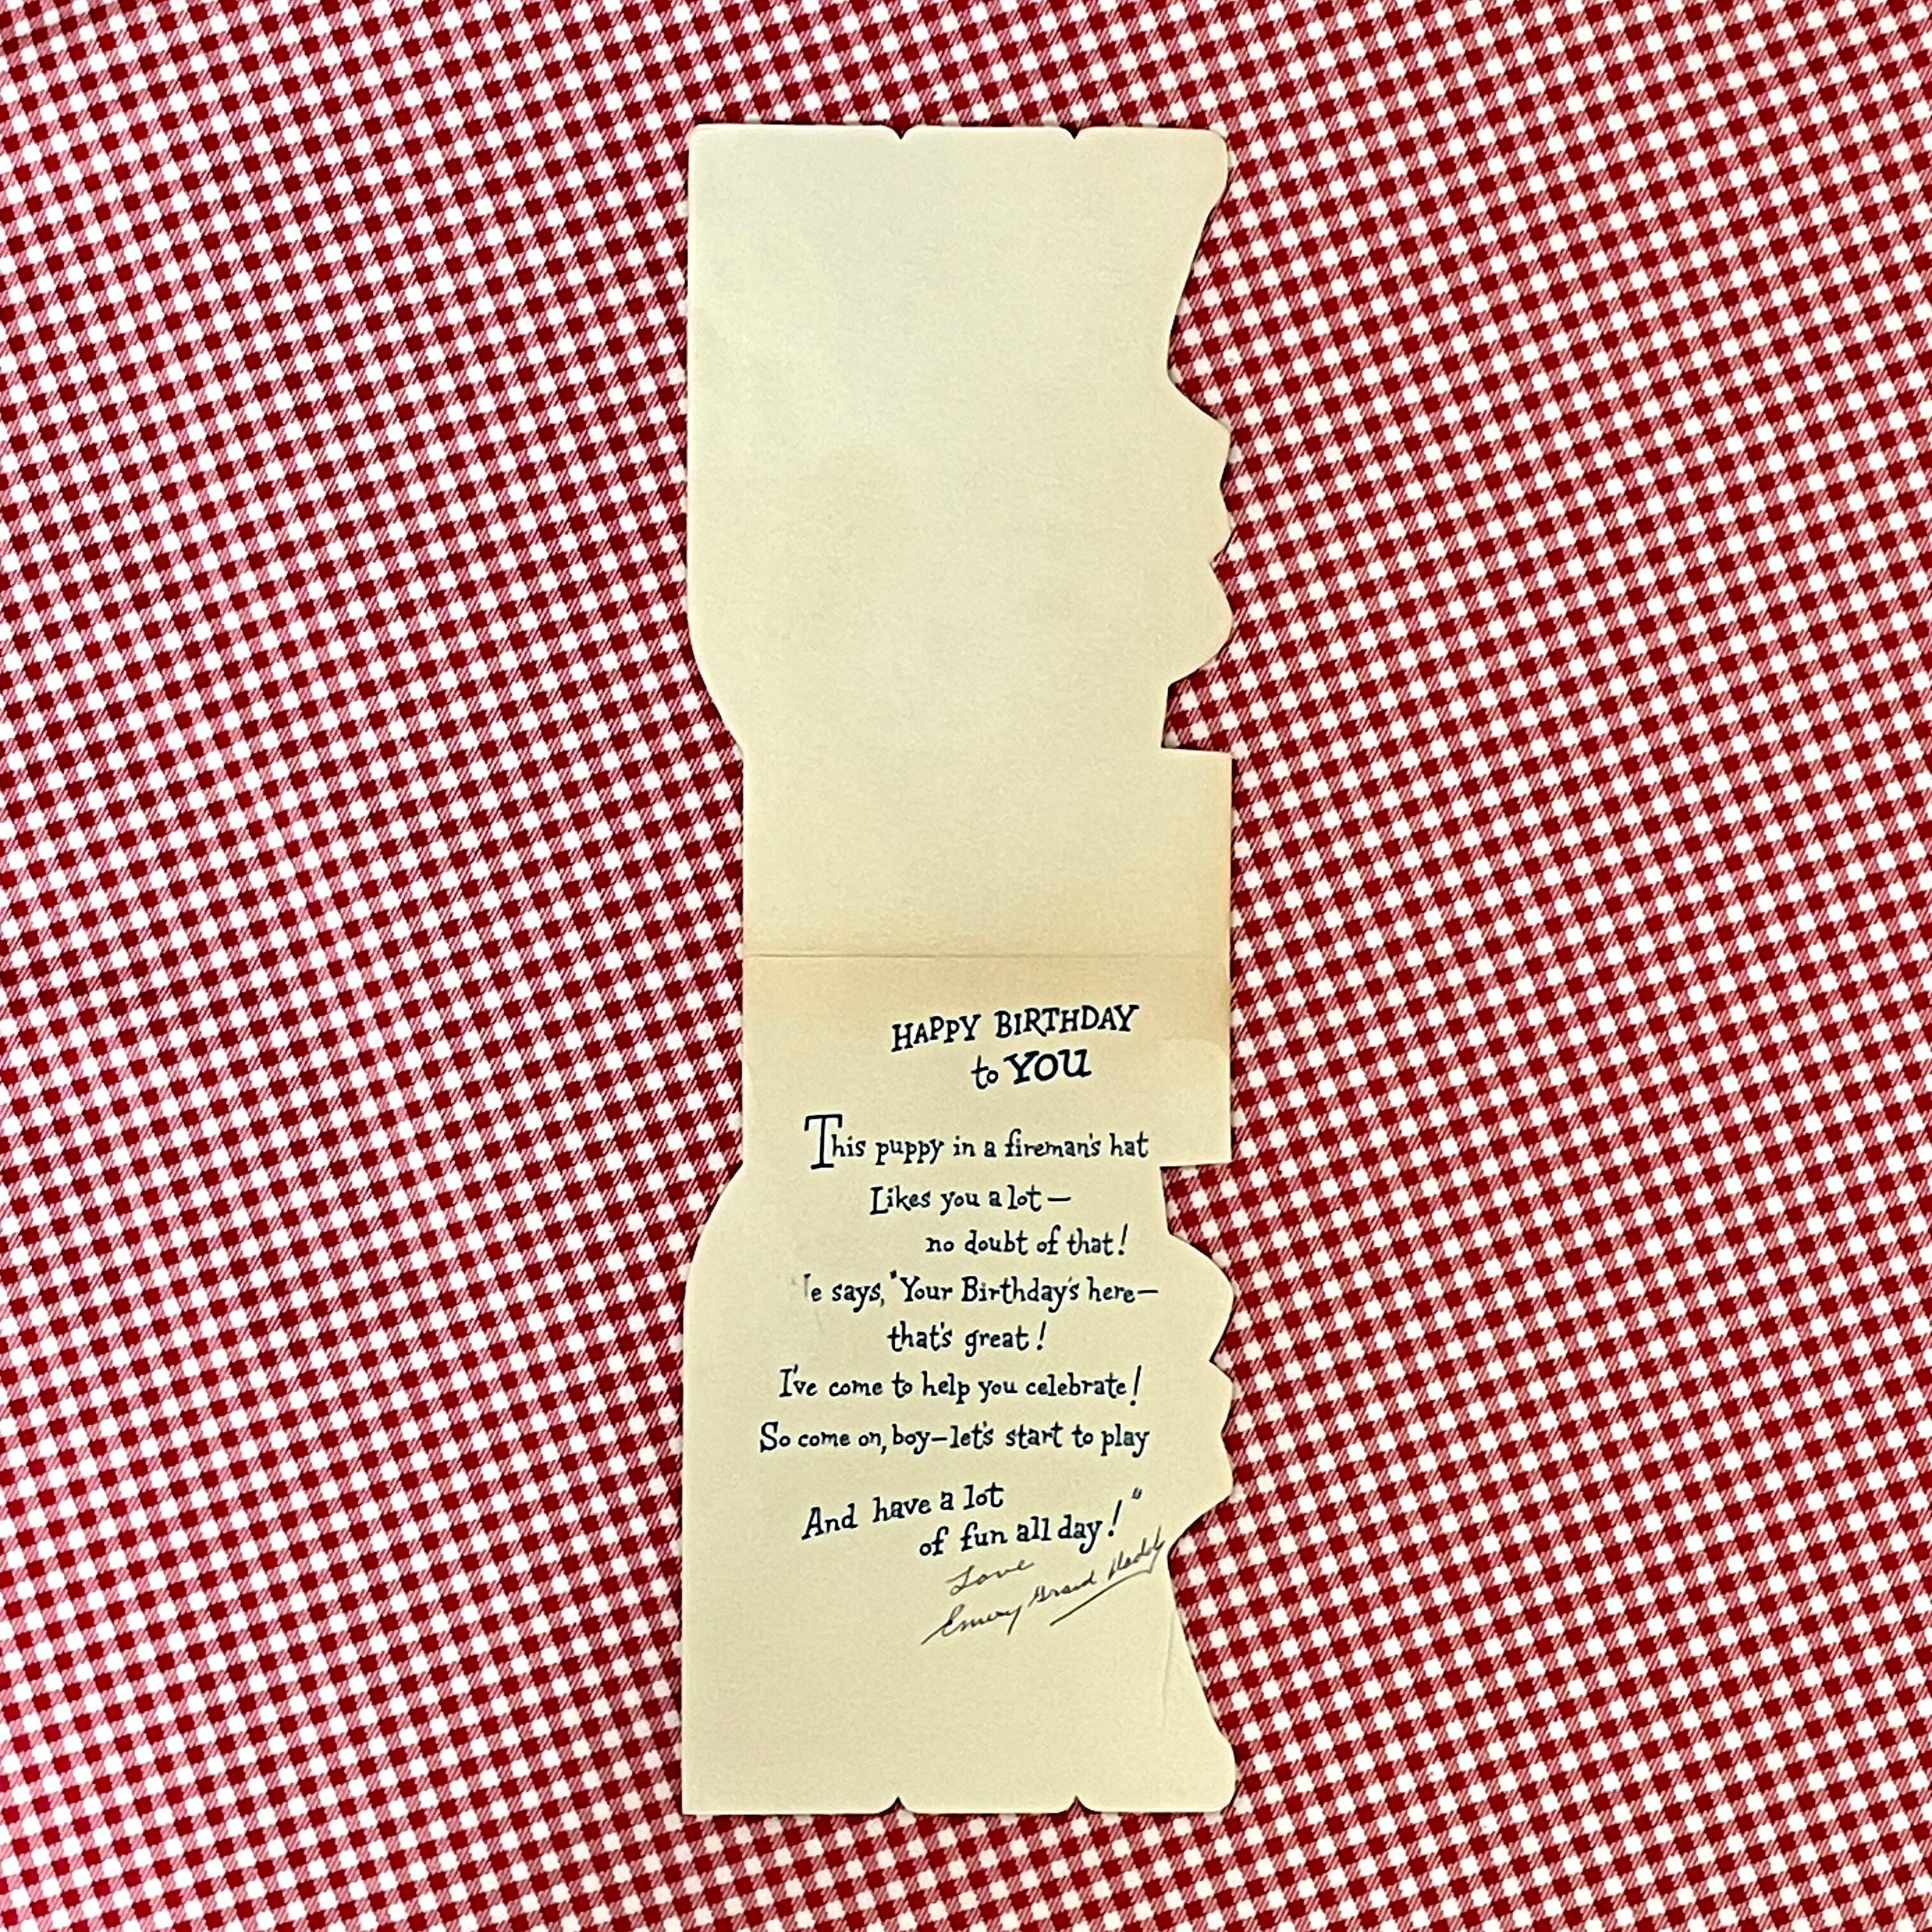 HAPPY BIRTHDAY
to YOU
This puppy in a fireman's hat
Likes you a lot—
no doubt of that!
e says, "Your Birthday's here—
that's great!
I've come to help you celebrate!
So come on, boy—let's start to play
And have a lot
of fun all day!"
Love
Grand Daddy